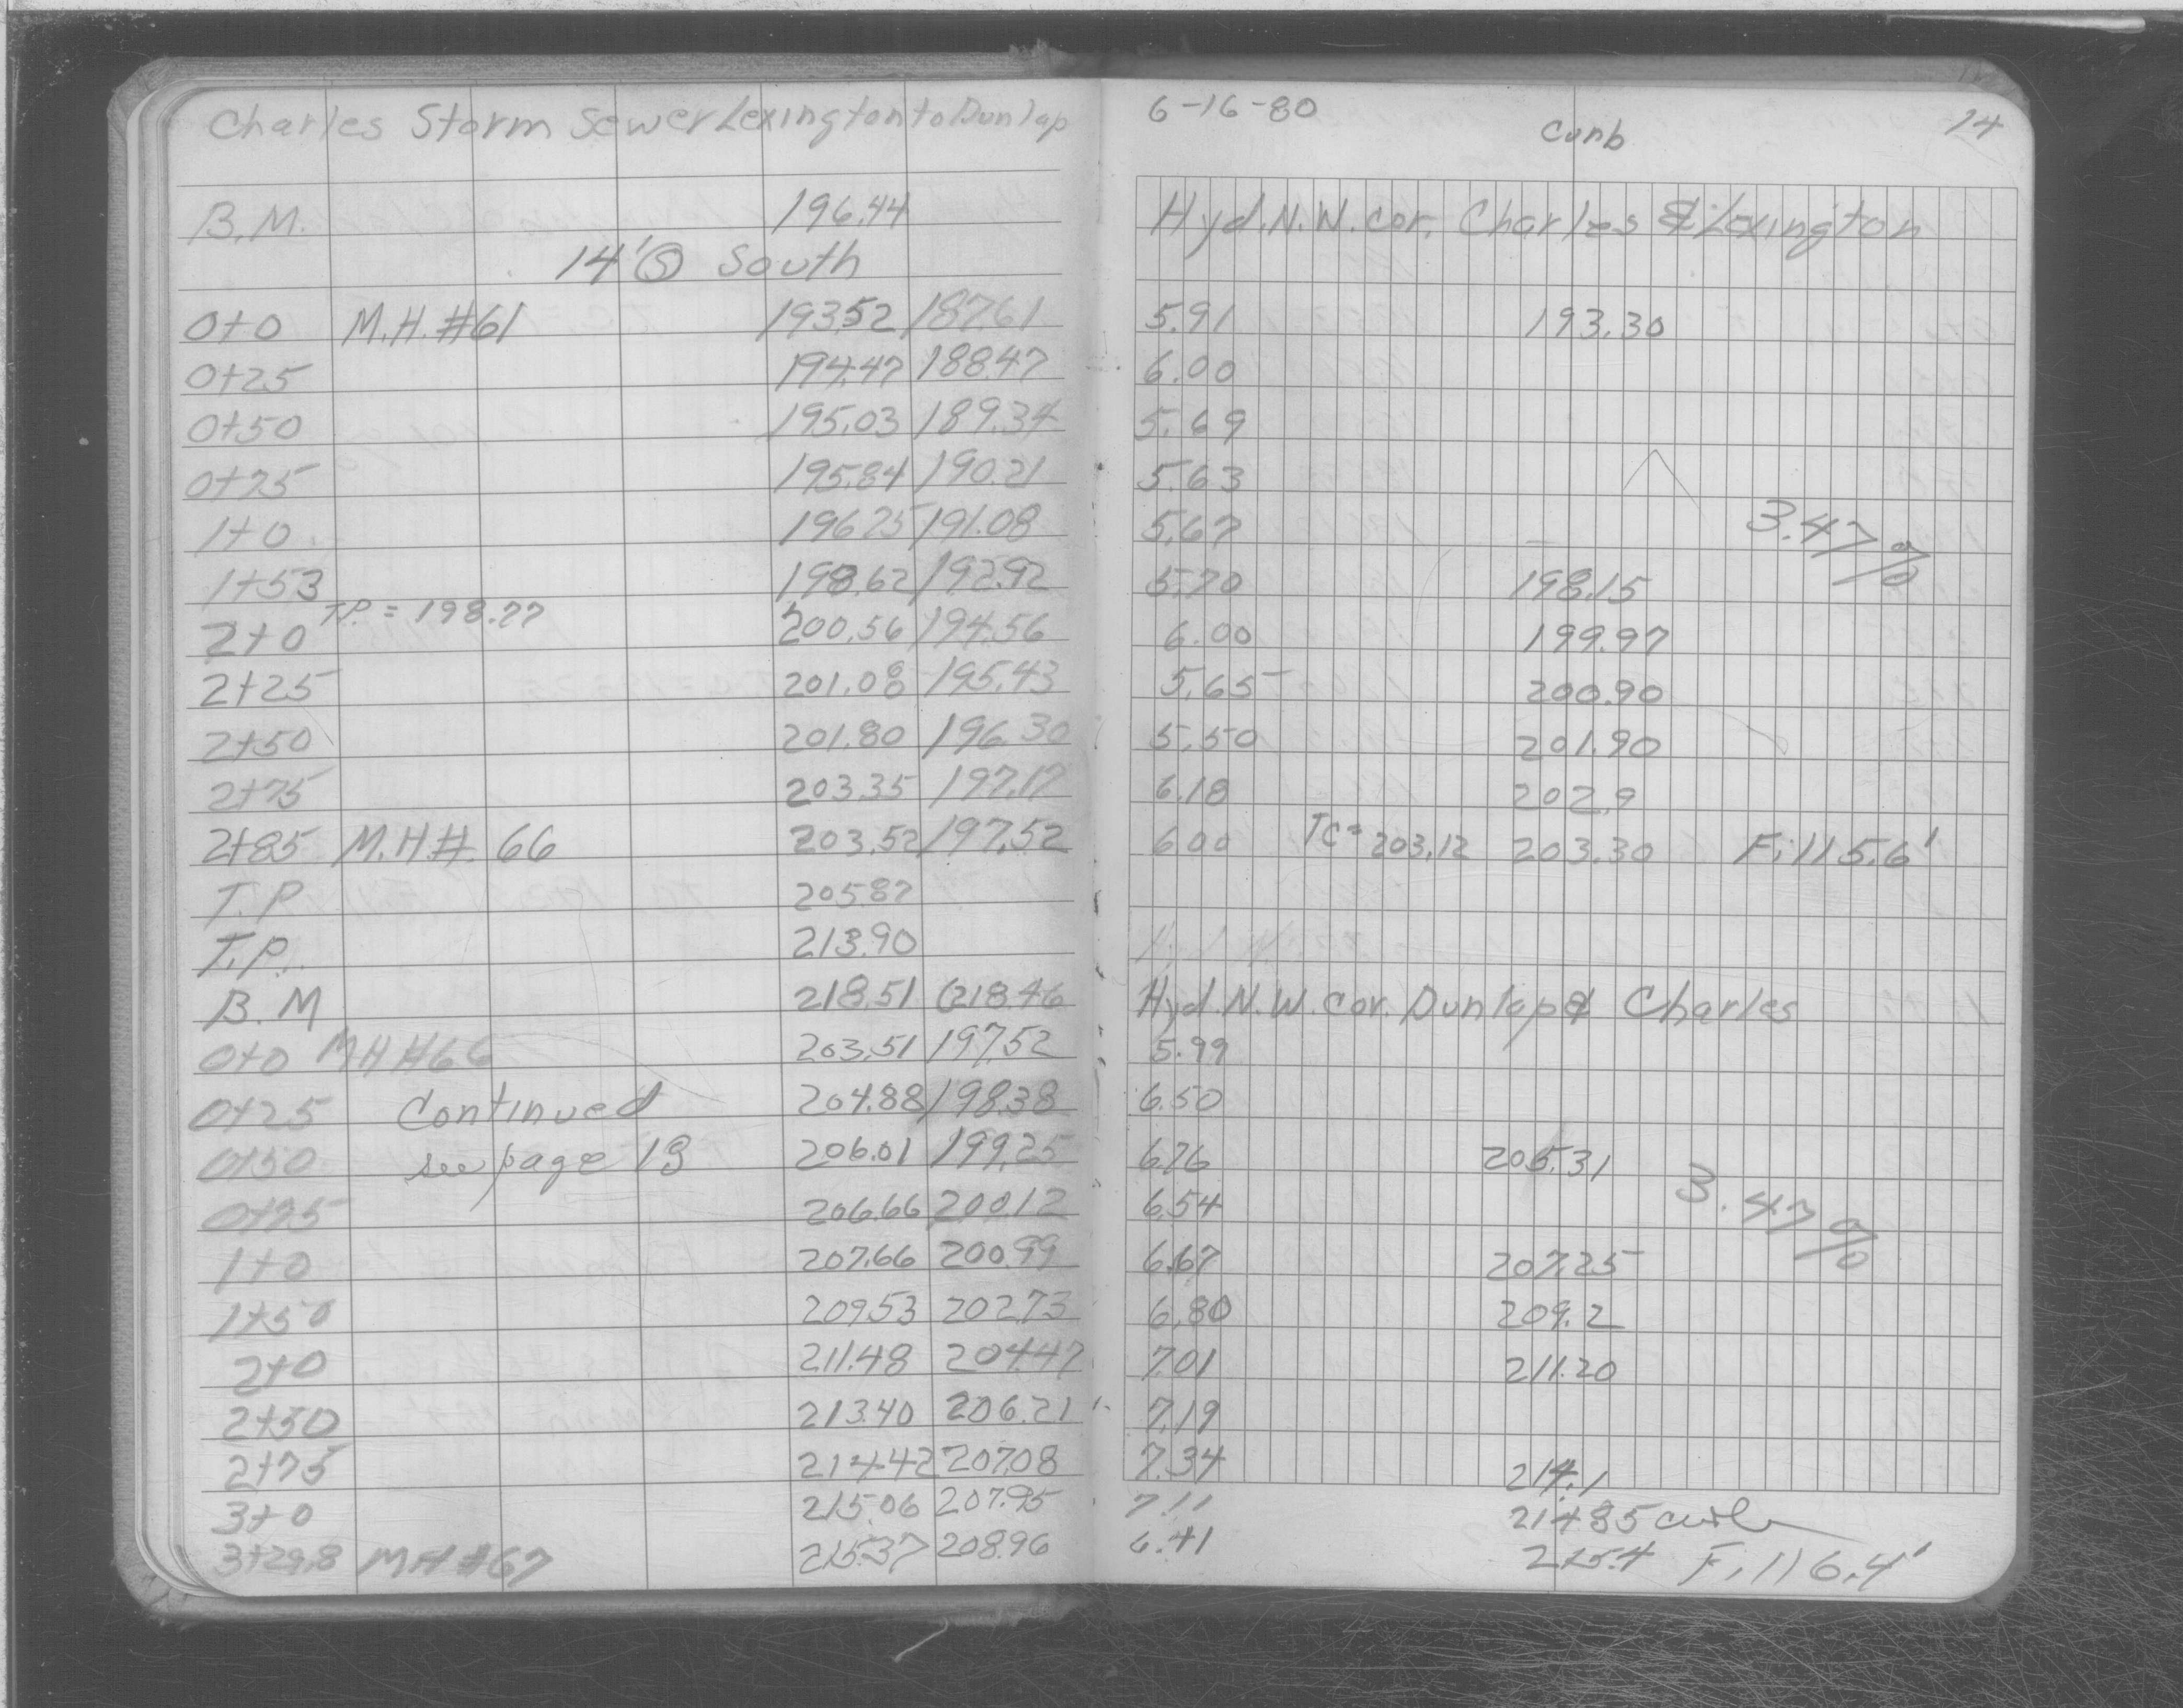 Charles Storm Sewer Lexington to Dunlap
B.M. 196.44
14' Ⓢ South
0+0 M.H. #61 193.52 187.61
0+25 194.47 188.47
0+50 195.03 189.34
0+75 195.84 190.21
1+0 196.25 191.08
1+53 198.62 192.92
T.P. = 198.77
2+0 200.56 194.56
2+25 201.08 195.43
2+50 201.80 196.30
2+75 203.35 197.17
2+85 M.H.#. 66 203.52 197.52
T.P 205.87
T.P. 213.90
B.M 218.51 (218.46
0+0 MH #66 203.51 197.52
0+25 Continued 204.88 198.38
0+50 see page 13 206.01 199.25
0+75 206.66 200.12
1+0 207.66 200.99
1+50 209.53 202.73
2+0 211.48 204.47
2+50 213.40 206.21
2+75 214.42 207.08
3+0 215.06 207.95
3+29.8 MH #67 215.37 208.96
6-16-80 14
Curb
Hyd. N.W. cor. Charles & Lexington
5.91 193.30
6.00
5.69
5.63
5.67 3.47%
5.70 198.15
6.00 199.97
5.65 200.90
5.50 201.90
6.18 202.9
6.00 TC= 203.12 203.30 Fill 5.6'
Hyd. N.W. cor. Dunlap & Charles
5.99
6.50
6.76 205.31
6.54 3.47%
6.67 207.25
6.80 209.2
7.01 211.20
7.19
7.34 214.1
7.11 214.85 curb
6.41 215.4 Fill 6.4'